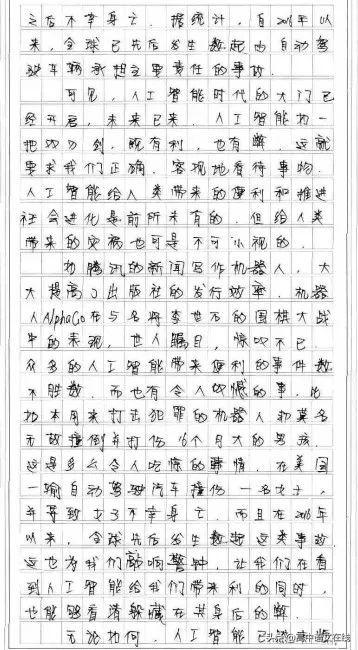 之后不幸身亡。据统计，自2016年以
来，全球已先后发生数起由自动驾
驶车辆承担主要责任的事故。
可见，人工智能时代的大门已
经开启，未来已来。人工智能如一
把 刀剑，既有利，也有弊，这就
要求我们正确、客观地看待事物。
人工智能给人类带来的便利和推进
社会进化是前所未有的，但给人类
带来的灾祸也可是不可小视的。
如腾讯的新闻写作机器人，大
大提高了出版社的发行效率。机器
人AlphaGo在与名将李世石的围棋大战
中的表现，世人瞩目，惊叹不已。
众多的人工智能带来便利的事件数
不胜数，而也有令人叹憾的事，比
如本用来打击犯罪的机器人却莫名
无故撞倒并打伤16个月大的男孩，
这是多么令人吃惊的事情。在美国
一辆自动驾驶汽车撞伤一名女子，
并导致女子不幸身亡。而且在2016年
以来，全球先后发生数起这类事故
这也为我们敲响警钟，让我们在看
到人工智能给我们带来利的同时，
也能够看清躲藏在其身后的弊。
无论如何，人工智能已
头条@高中语文在线